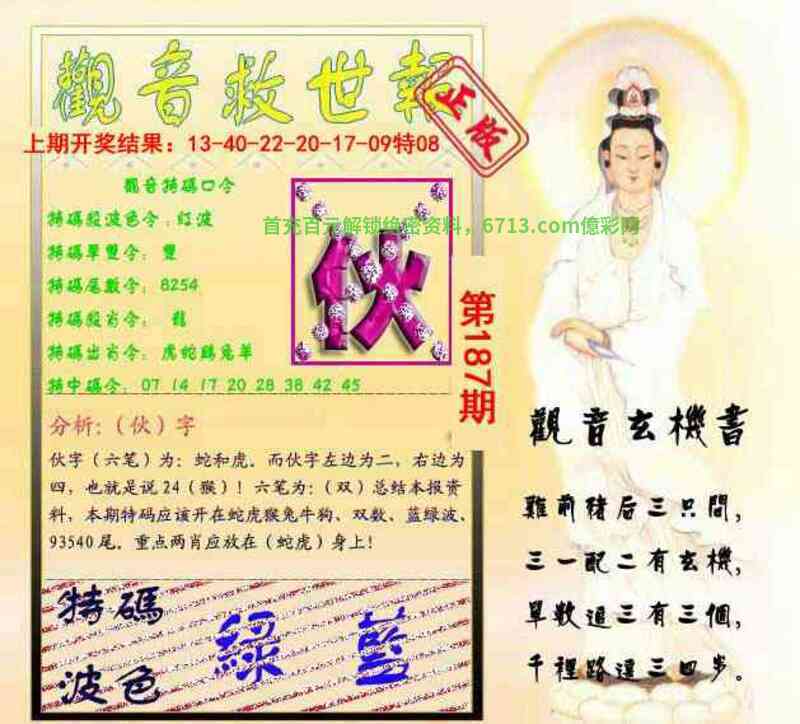 觀音救世報
正版
上期开奖结果：13-40-22-20-17-09特08
觀音特碼口令
首充百元解锁绝密资料，6713.com億彩网
特碼殺波色令：紅波
特碼單雙令：雙
特碼尾數令：8254
特碼殺肖令：龍
特碼出肖令：虎蛇鷄兔羊
特中碼令：07 14 17 20 28 38 42 45
伙
第187期
分析：（伙）字
伙字（六笔）为：蛇和虎。而伙字左边为二，右边为
四，也就是说24（猴）！六笔为：（双）总结本报资
料，本期特码应该开在蛇虎猴兔牛狗、双数、蓝绿波、
93540尾。重点两肖应放在（蛇虎）身上！
特碼
波色
綠 藍
觀音玄機書
雞前豬后三只問，
三一配二有玄機，
單數追三有三個，
千裡路遥三四步。